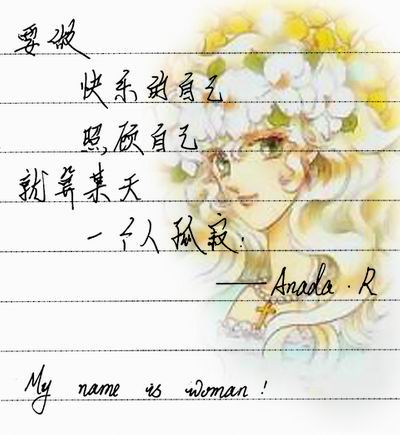 要做
快乐的自己
照顾自己
就算某天
一个人孤寂;
——Anada·R
My name is woman!